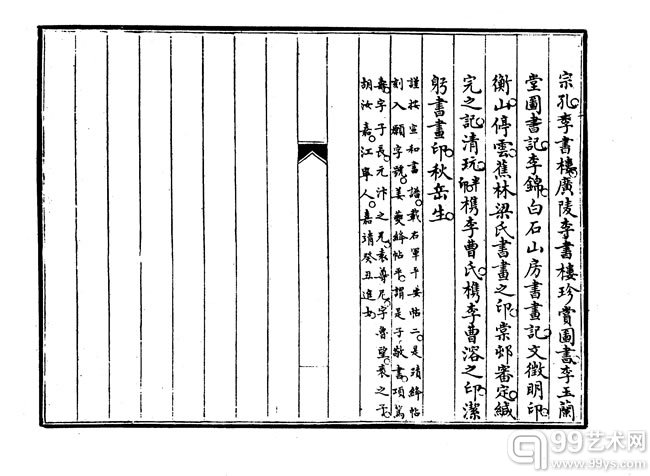 宗孔。李書樓。廣陵李書樓珍賞圖書。李玉蘭
堂圖書記。李錦。白石山房書畫記。文徵明印。
衡山。停雲。蕉林梁氏書畫之印。棠邨審定。緘
完之記。清玩。檇李曹氏。檇李曹溶之印。潔
躬書畫印。秋岳生。
謹按宣和書譜。載右軍平安帖二。是靖絳帖
刻入願字號。姜夔絳帖平。謂是子敬書。項篤
壽字子長。元汴之兄。袁尊尼。字魯望。袤之子。
胡汝嘉。江寧人。嘉靖癸丑進士。
99艺术网
www.99ys.com